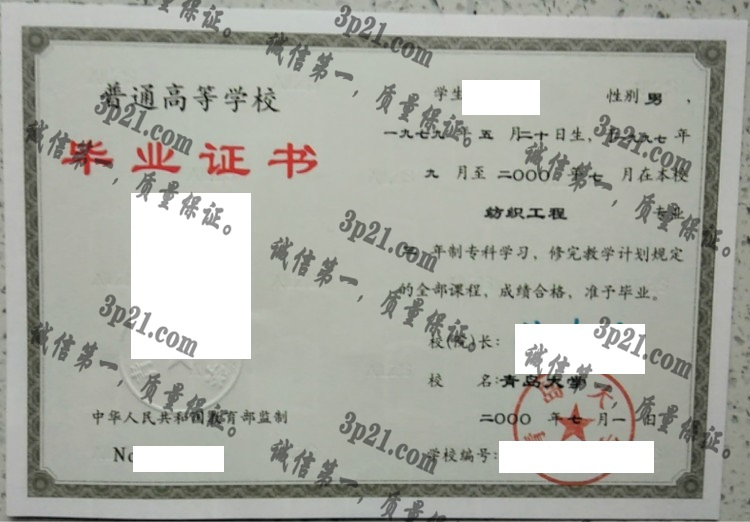 普通高等学校
毕业证书
中华人民共和国教育部监制
No
学生 性别 男 ，
一九七九 年 五 月二十日生，于一九九七年
九 月至 二〇〇〇 年 七 月在本校
纺织工程 专业
年制专科学习，修完教学计划规定
的全部课程，成绩合格，准予毕业。
校(院)长：
校 名：青岛大学
二〇〇〇 年 七 月 一 日
学校编号：
3p21.com
诚信第一，质量保证。
3p21.com
诚信第一，质量保证。
3p21.com
诚信第一，质量保证。
3p21.com
诚信第一，质量保证。
3p21.com
诚信第一，质量保证。
3p21.com
诚信第一，质量保证。
3p21.com
诚信第一，质量保证。
3p21.com
诚信第一，质量保证。